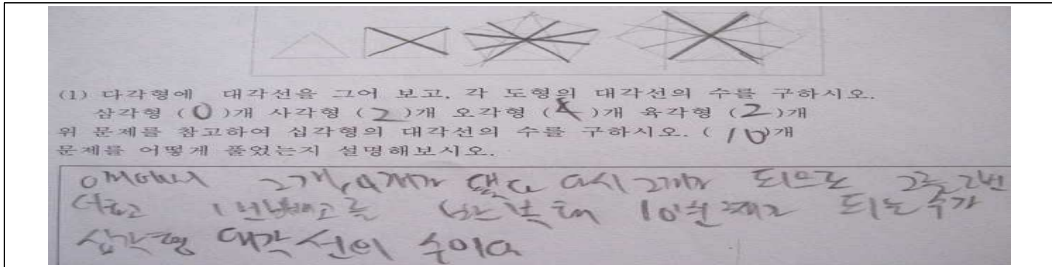 (1) 다각형에 대각선을 그어 보고, 각 도형의 대각선의 수를 구하시오.
삼각형 (0)개 사각형 (2)개 오각형 (4)개 육각형 (2)개
위 문제를 참고하여 십각형의 대각선의 수를 구하시오. (10)개
문제를 어떻게 풀었는지 설명해보시오.
0개에서 2개, 4개가 됐다 다시 2개가 되므로 2를 2번
더하고 1번 빼고를 반복해 10번째가 되는 수가
십각형 대각선의 수이다